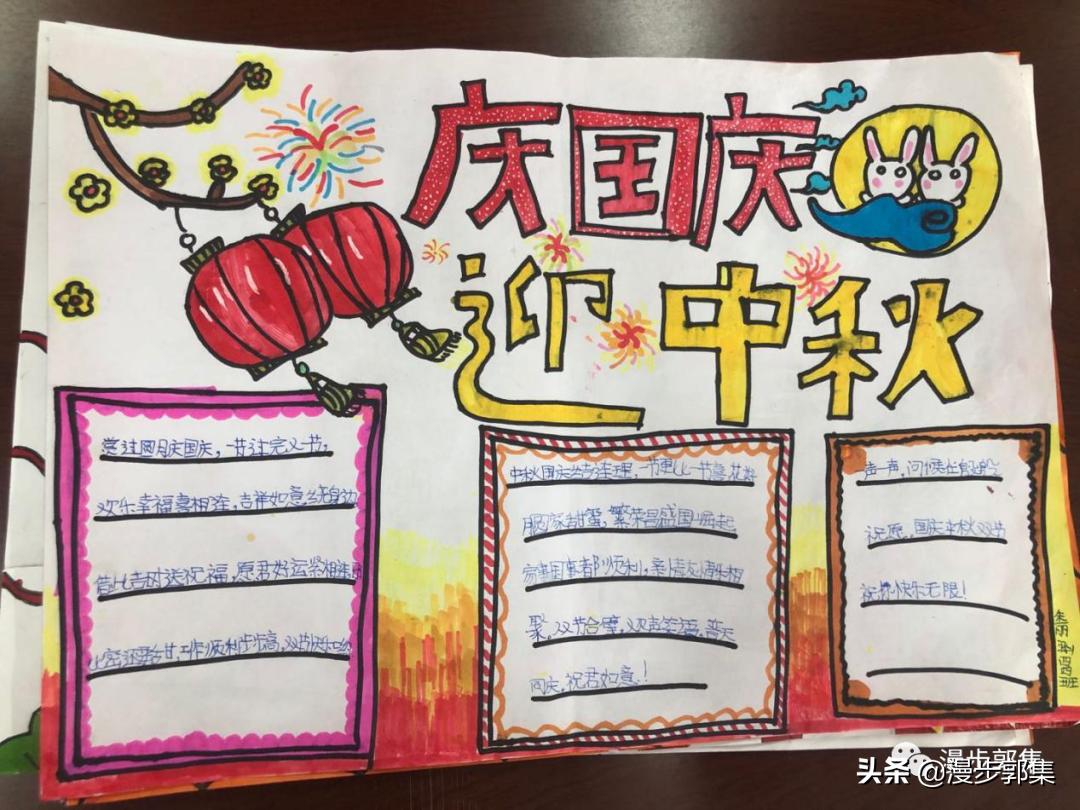 庆国庆
迎中秋
赏过圆月庆国庆，一节过完又一节，
欢乐幸福喜相连，吉祥如意绕身边
值此吉时送祝福，愿君好运紧相
比蜜还要甘，工作顺利步步高，双节快乐
中秋国庆结连理，一节更比一节喜，花好
月圆家甜蜜，繁荣昌盛国崛起
家事国事都顺利，亲情友情来相
聚。双节合璧，欢声笑语，普天
同庆，祝君如意！
声声，问候
祝愿，国庆中秋双节
祝你快乐无限！
漫步郭集
头条@漫步郭集